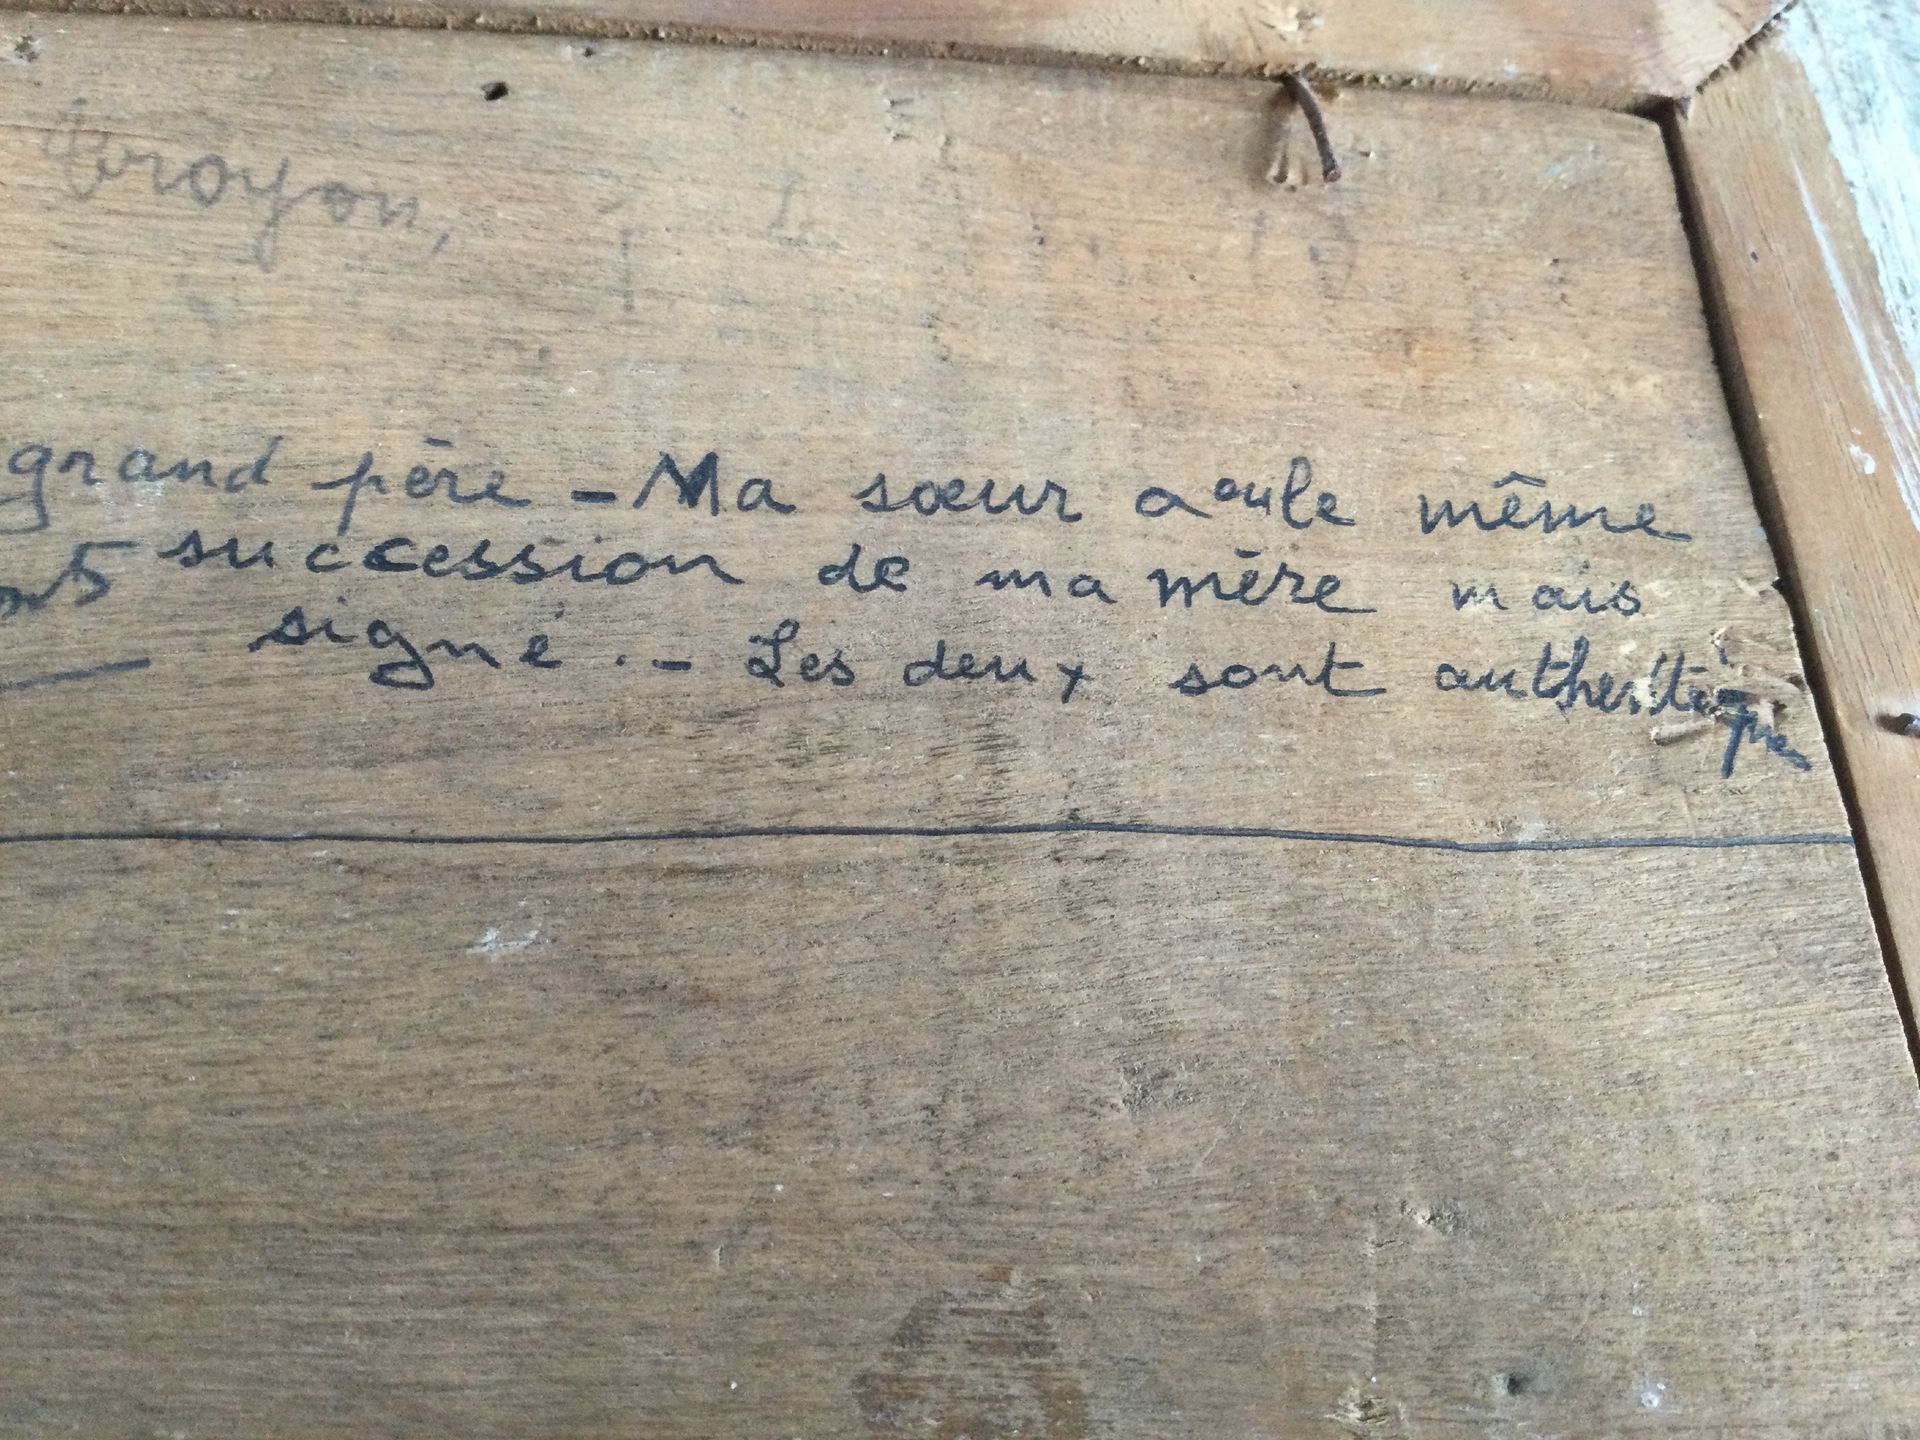 Troyon,
grand père - Ma sœur a eu le même
succession de ma mère mais
signé . - Les deux sont authentiques